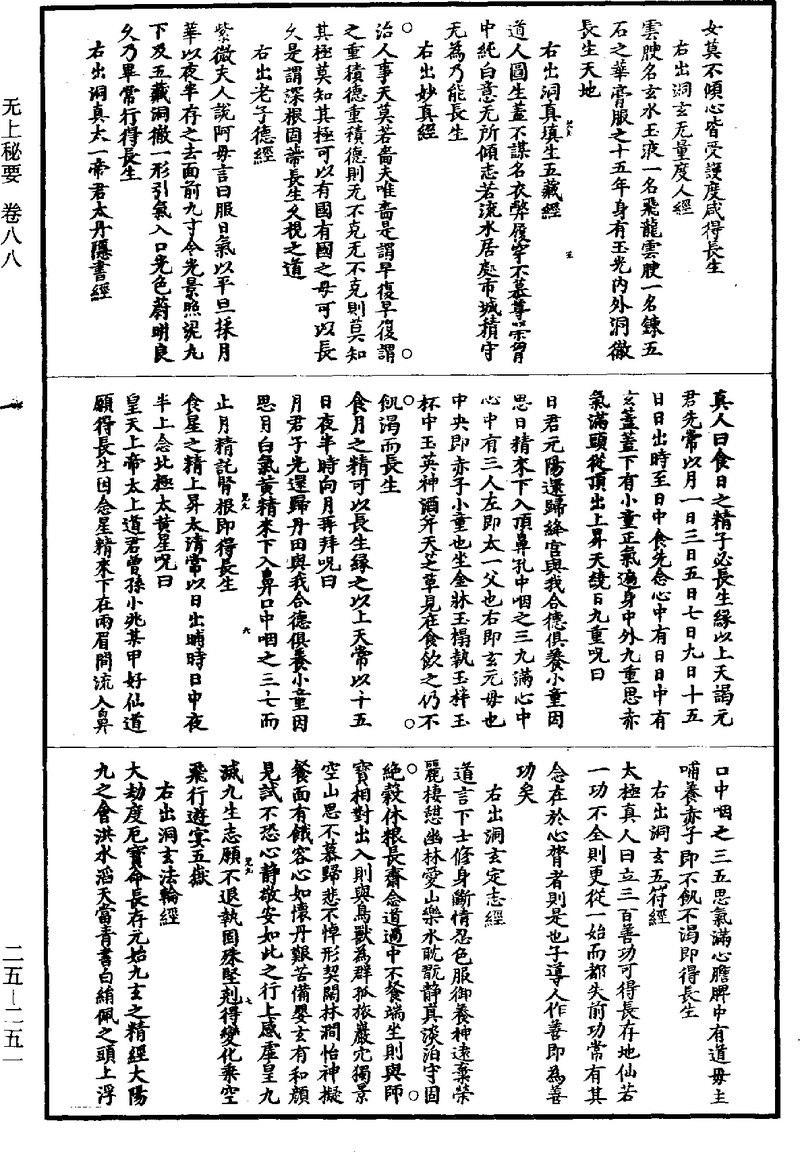 无上秘要　卷八八
一
二五—二五一
女莫不傾心皆受護度咸得長生
右出洞玄无量度人經
雲腴名玄水玉液一名飛龍雲腴一名鍊五
石之華膏服之十五年身有玉光內外洞徹
長生天地
右出洞真填生五藏經
道人圖生蓋不謀名衣弊履穿不慕尊榮胷
中純白意无所傾志若流水居處市城積守
无為乃能長生
右出妙真經
治人事天莫若嗇夫唯嗇是謂早復早復謂
之重積德重積德則无不克无不克則莫知
其極莫知其極可以有國有國之母可以長
久是謂深根固蔕長生久視之道
右出老子德經
紫微夫人說阿母言曰服日氣以平旦採月
華以夜半存之去面前九寸令光景照泥丸
下及五藏洞徹一形引氣入口光色蔚明良
久乃畢常行得長生
右出洞真太一帝君太丹隱書經
真人曰食日之精子必長生緣以上天謁元
君先常以月一日三日五日七日九日十五
日日出時至日中食先念心中有日日中有
玄蓋蓋下有小童正氣遍身中外九重思赤
氣滿頭從頂出上昇天繞日九重呪曰
日君元陽還歸絳宮與我合德俱養小童因
思日精來下入頂鼻孔中咽之三九滿心中
心中有三人左即太一父也右即玄元母也
中央即赤子小童也坐金牀玉榻執玉杯玉
杯中玉英神酒牙天芝草見在食飲之仍不
飢渴而長生
食月之精可以長生緣之以上天常以十五
日夜半時向月再拜呪曰
月君子光還歸丹田與我合德俱養小童因
思月白氣黃精來下入鼻口中咽之三七而
止月精託腎根即得長生
食星之精上昇太清常以日出晡時日中夜
半上念北極太黃星呪曰
皇天上帝太上道君曾孫小兆某甲好仙道
願得長生因念星精來下在兩眉間流入鼻
口中咽之三五思氣滿心膽脾中有道母主
哺養赤子即不飢不渴即得長生
右出洞玄五符經
太極真人曰立三百善功可得長存地仙若
一功不全則更從一始而都失前功常有其
念在於心膂者則是也子導人作善即為善
功矣
右出洞玄定志經
道言下士修身斷情忍色服御養神遠棄榮
麗棲憩幽林愛山樂水耽翫靜真淡泊守固
絕穀休粮長齋念道過中不餐端坐則與師
寶相對出入則與鳥獸為群孤旅巖穴獨景
空山思不慕歸悲不悼形契闊林澗怡神擬
餐面有餓容心如懷丹艱苦備嬰玄有和顏
見試不恐心靜敬安如此之行上感虛皇九
滅九生志願不退執固殊堅剋得變化乘空
飛行遊宴五嶽
右出洞玄法輪經
大劫度厄寶命長存元始九玄之精經大陽
九之會洪水滔天當青書白絹佩之頭上浮